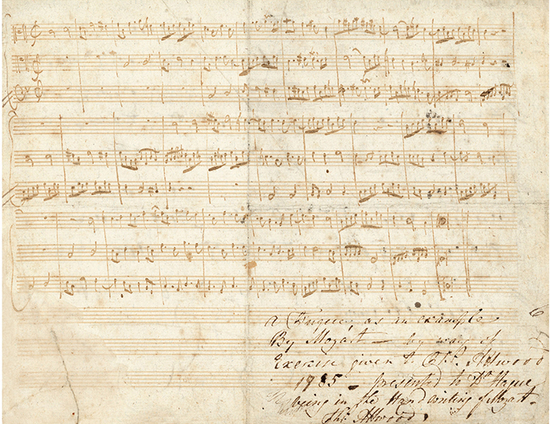 a Fugue, as an example
By Mozart — by way of
Exercise given to Thos. Attwood
1785 — presented to Dr Hague
being in the Hand writing of Mozart —
Thos. Attwood
6